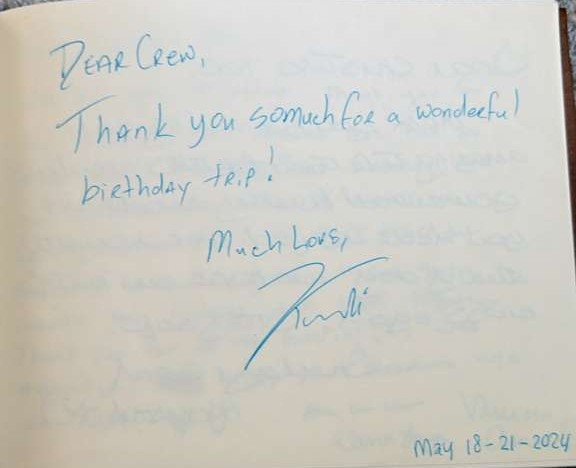 Dear Crew,
Thank you so much for a wonderful
birthday trip!
Much Love,
May 18-21-2024